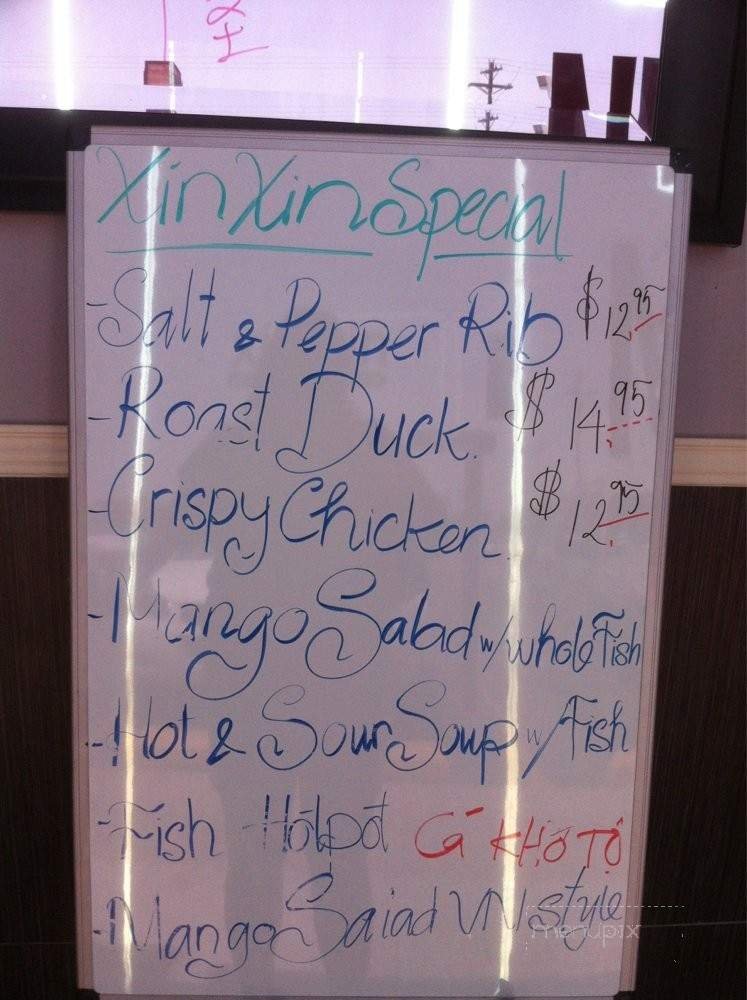 Xin Xin Special
- Salt & Pepper Rib $12.95
- Roast Duck. $14.95
- Crispy Chicken. $12.95
- Mango Salad w/ whole Fish
- Hot & Sour Soup w/ Fish
- Fish Hotpot Cá KHO TỘ
- Mango Salad VN Style
menupix